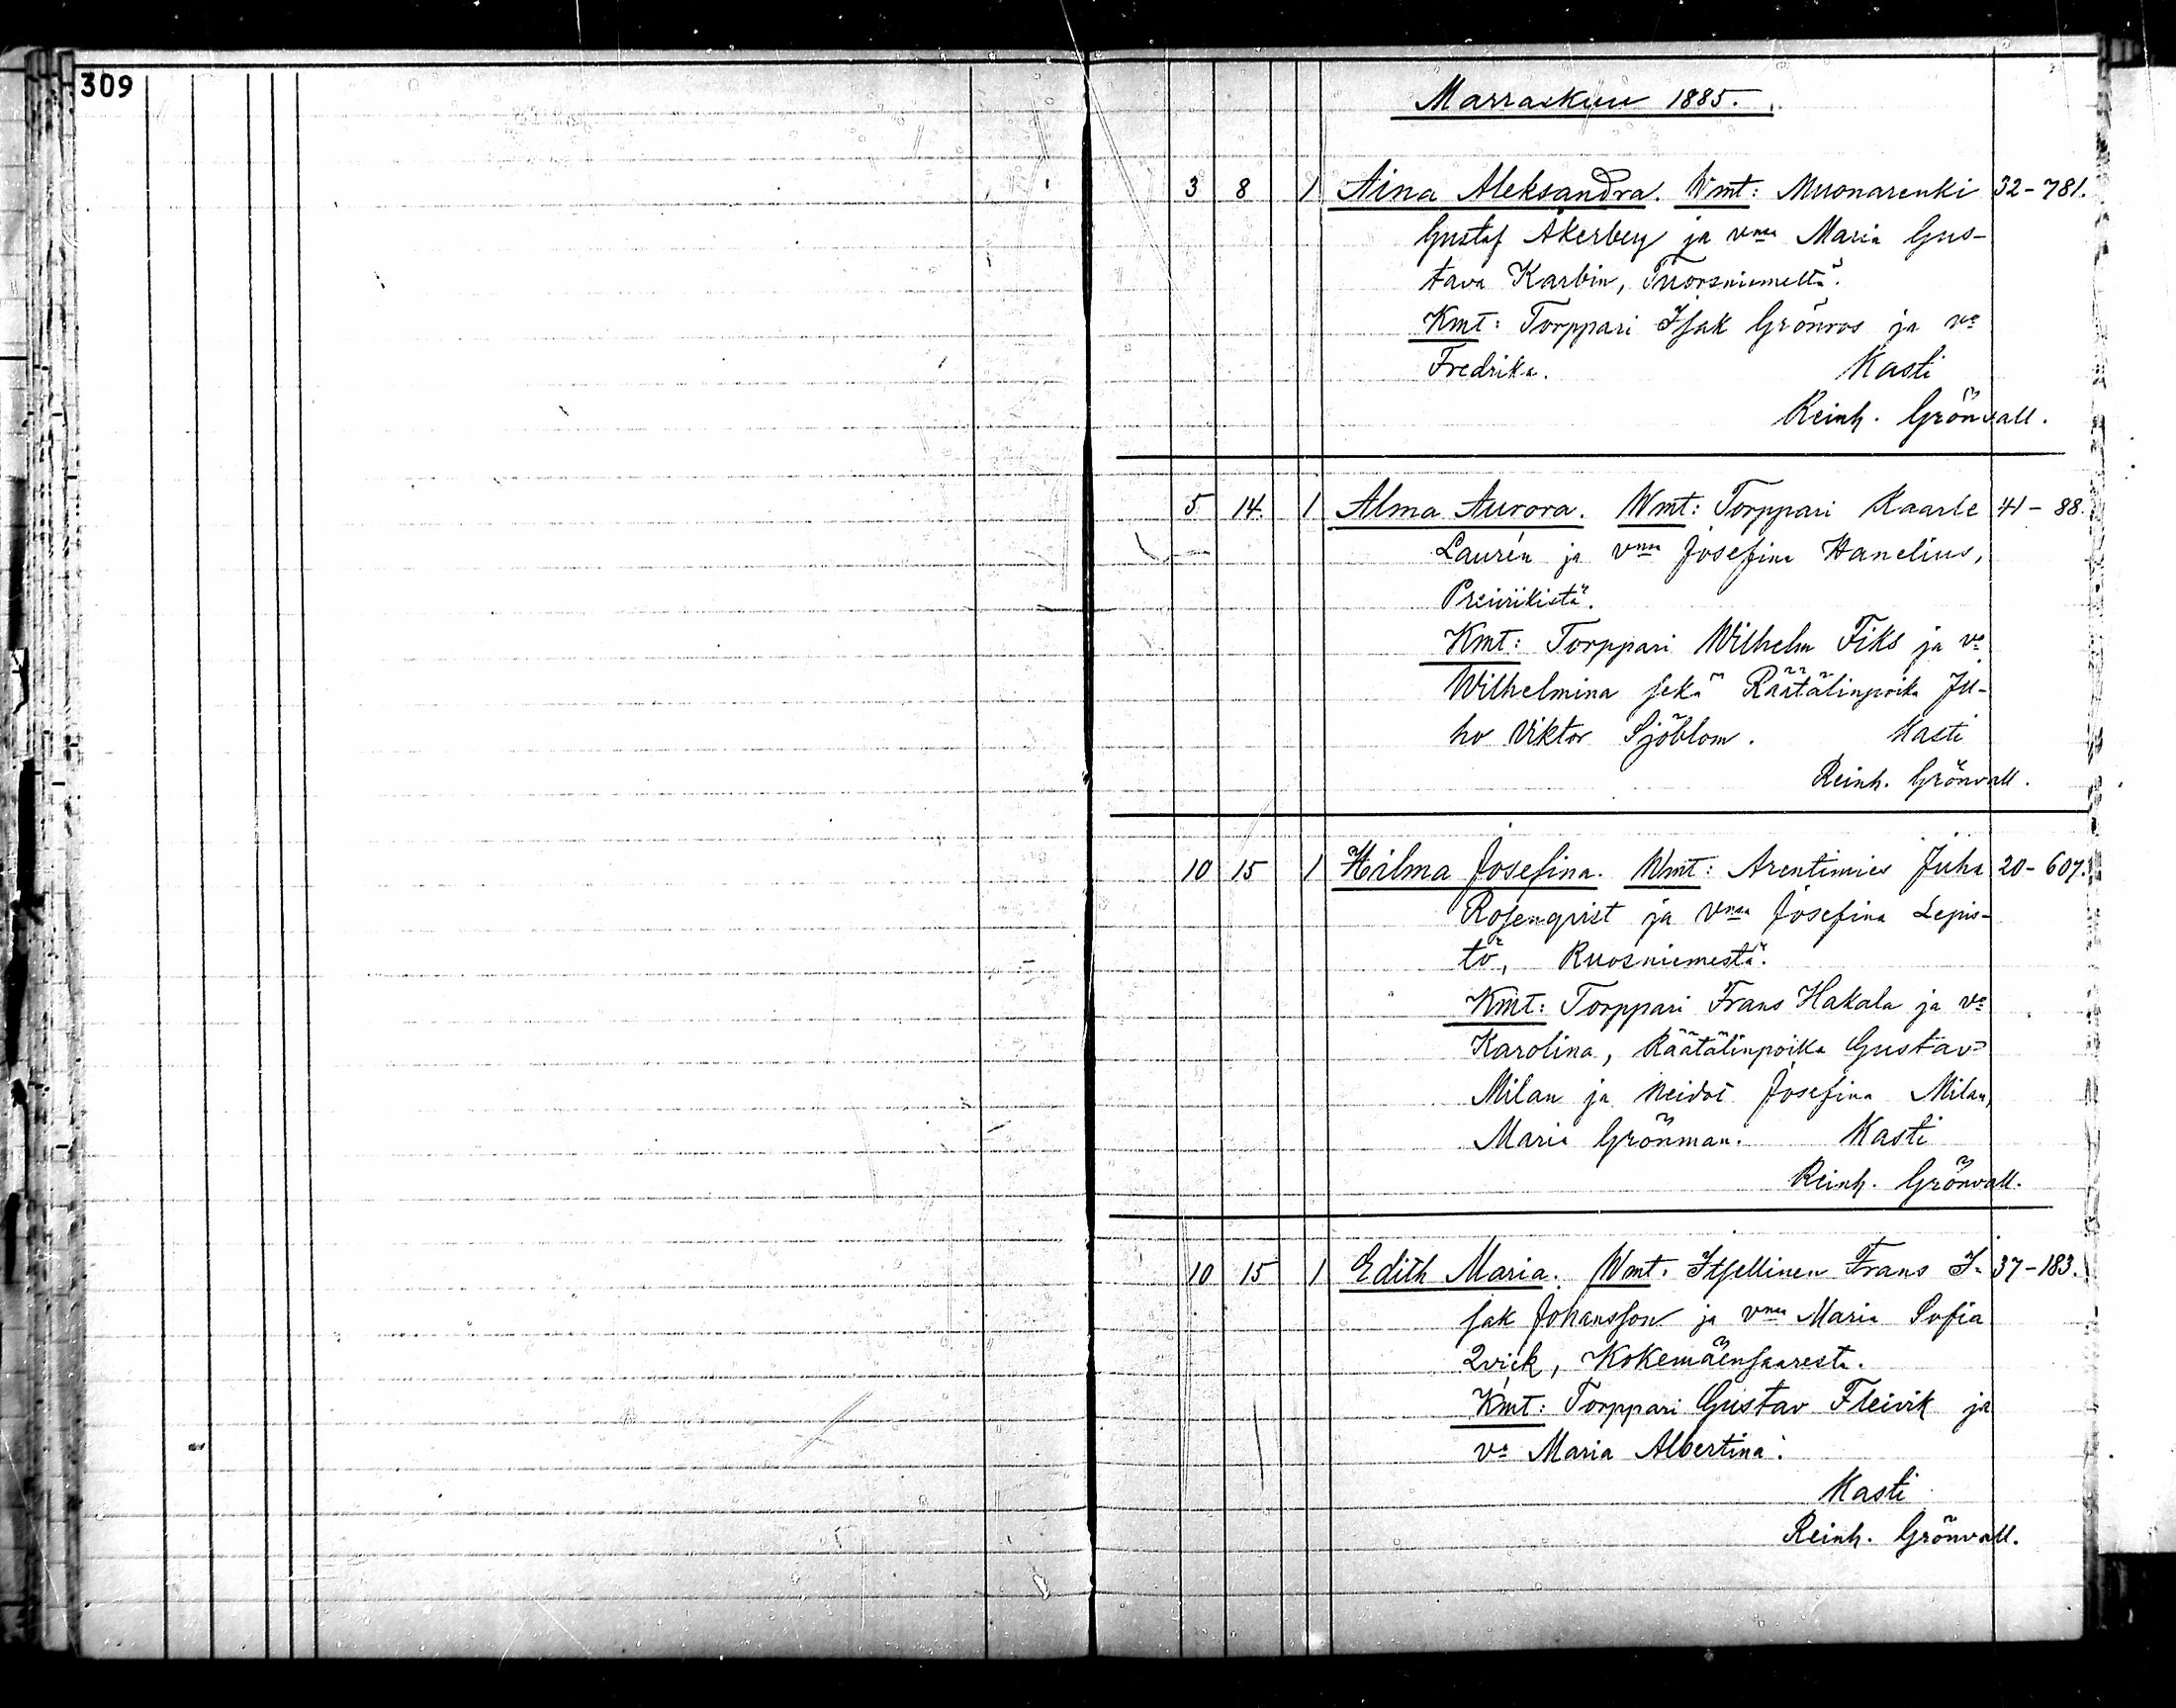 309
Marraskuu 1885.
3 8 1 Aina Aleksandra. Wmt: Muonarenki 32-781.
Gustaf Åkerberg ja vmsa Maria Gus-
tava Karbin, Tuorsniemeltä.
Kmt: Torppari Isak Grönros ja vo
Fredrika. Kasti
Reinh. Grönvall.
5 14. 1 Alma Aurora. Wmt: Torppari Kaarle 41-88.
Laurén ja vmsa Josefina Hanelius,
Preiviikistä.
Kmt: Torppari Wilhelm Fiks ja vo
Wilhelmina sekä Räätälinpoika Ju-
ho Viktor Sjöblom. Kasti
Reinh. Grönvall.
10 15 1 Hilma Josefina. Wmt: Arentimies Juha 20-607.
Rosenqvist ja vmsa Josefina Lepis-
tö, Ruosniemestä.
Kmt: Torppari Frans Hakala ja vo
Karolina, Räätälinpoika Gustav
Milan ja neidot Josefina Milan,
Maria Grönman. Kasti
Reinh. Grönvall.
10 15 1 Edith Maria. Wmt: Itsellinen Frans I- 37-183.
sak Johansson ja vmsa Maria Sofia
Qvick, Kokemäensaaresta.
Kmt: Torppari Gustav Fleivik ja
vo Maria Albertina.
Kasti
Reinh. Grönvall.